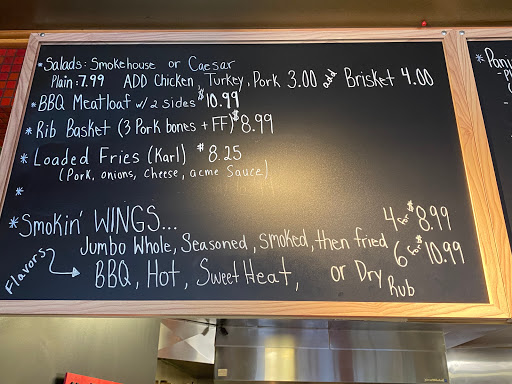 * Salads: Smokehouse or Caesar
Plain: 7.99 ADD Chicken, Turkey, Pork 3.00 add Brisket 4.00
* BBQ Meatloaf w/ 2 sides $10.99
* Rib Basket (3 Pork bones + FF) $8.99
* Loaded Fries (Karl) $8.25
(Pork, onions, cheese, acme Sauce)
*
* Smokin' WINGS... 4 for $8.99
Jumbo Whole, Seasoned, smoked, then fried 6 for $10.99
Flavors BBQ, Hot, Sweet Heat, or Dry Rub
* Pani